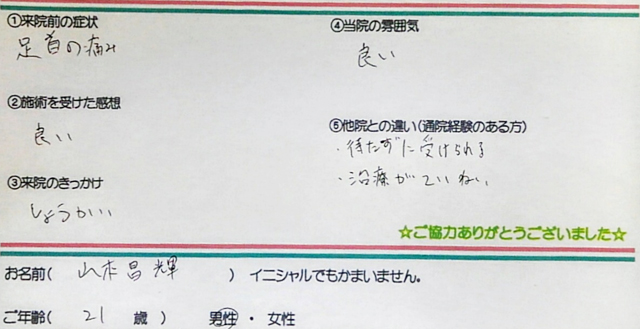 ①来院前の症状
足首の痛み
②施術を受けた感想
良い
③来院のきっかけ
しょうかい
④当院の雰囲気
良い
⑤他院との違い(通院経験のある方)
・待たずに受けられる
・治療がていねい
☆ご協力ありがとうございました☆
お名前( 山本昌輝 ) イニシャルでもかまいません。
ご年齢( 21 歳 ) 男性 ・ 女性